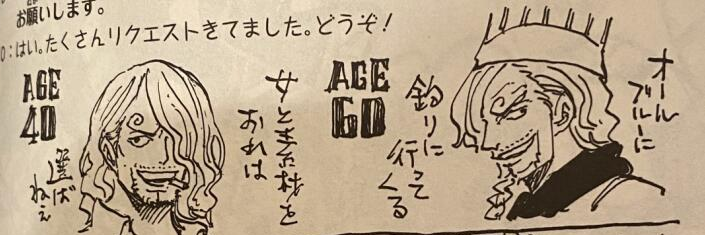 お願いします。
O：はい。たくさんリクエストきてました。どうぞ！
AGE
40
女と素材を
おれは
選ば
ねェ
AGE
60
オール
ブルーに
釣りに
行って
くる